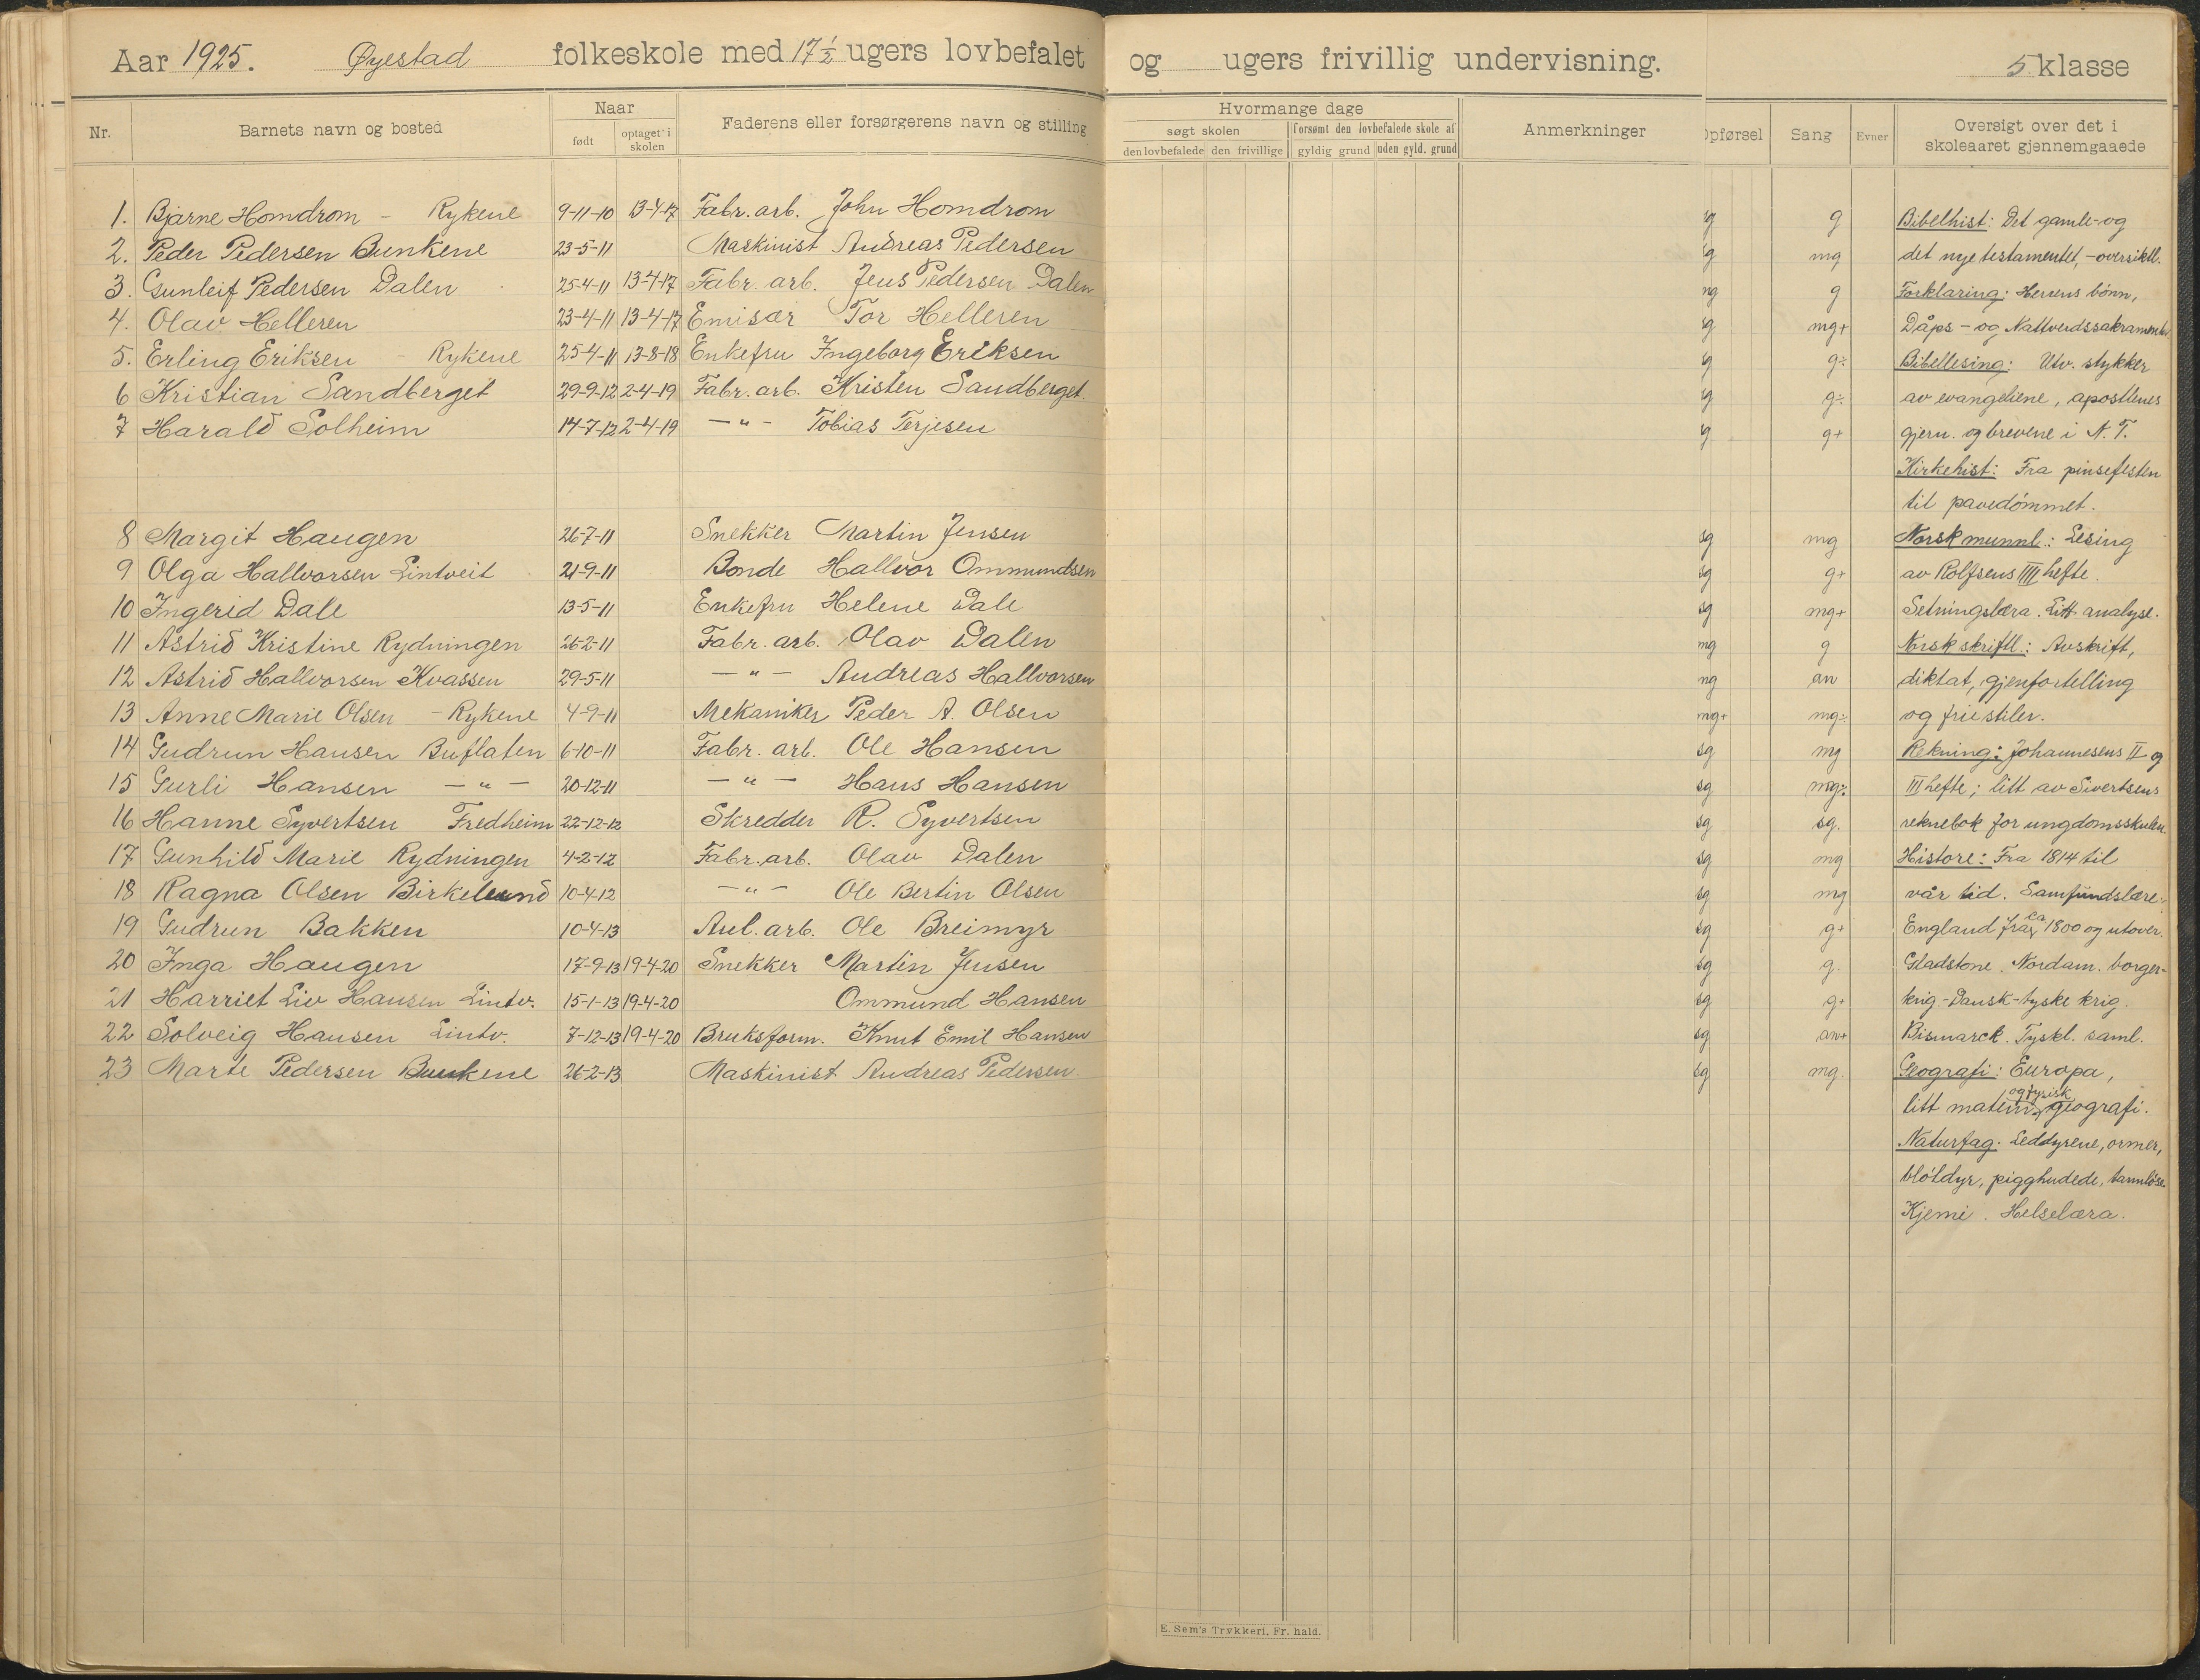 Aar 1925. Øyestad folkeskole med 17 ½ ugers lovbefalet og ugers frivillig undervisning. 5 klasse
Nr. Barnets navn og bosted Naar født optaget i skolen Faderens eller forsørgerens navn og stilling
Hvormange dage søgt skolen den lovbefalede den frivillige forsømt den lovbefalede skole af gyldig grund uden gyld. grund Anmerkninger
Opførsel Sang Evner Oversigt over det i skoleaaret gjennemgaaede
1. Bjarne Homdrom - Rykene 9-11-10 13-4-17 Fabr. arb. John Homdrom
2. Peder Pedersen Bunkene 23-5-11 Maskinist Andreas Pedersen
3. Gunleif Pedersen Dalen 25-4-11 13-4-17 Fabr. arb. Jens Pedersen Dalen
4. Olav Helleren 23-4-11 13-4-17 Emisær Tor Helleren
5. Erling Eriksen - Rykene 25-4-11 13-8-18 Enkefru Ingeborg Eriksen
6 Kristian Sandberget 29-9-12 2-4-19 Fabr. arb. Kristen Sandberget
7 Harald Solheim 14-7-12 2-4-19 -"- Tobias Terjesen
8 Margit Haugen 26-7-11 Snekker Martin Jensen
9 Olga Hallvorsen Lintveit 21-9-11 Bonde Hallvor Ommundsen
10 Ingerid Dale 13-5-11 Enkefru Helene Dale
11 Astrid Kristine Rydningen 26-2-11 Fabr. arb. Olav Dalen
12 Astrid Hallvorsen Kvassen 29-5-11 -"- Andreas Hallvorsen
13 Anne Marie Olsen - Rykene 4-9-11 Mekaniker Peder A. Olsen
14 Gudrun Hansen Buflaten 6-10-11 Fabr. arb. Ole Hansen
15 Gurli Hansen -"- 20-12-11 -"- Hans Hansen
16 Hanne Syvertsen Fredheim 22-12-12 Skredder R. Syvertsen
17 Gunhild Marie Rydningen 4-2-12 Fabr. arb. Olav Dalen
18 Ragna Olsen Birkelund 10-4-12 -"- Ole Bertin Olsen
19 Gudrun Bakken 10-4-13 Anl. arb. Ole Breimyr
20 Inga Haugen 17-9-13 19-4-20 Snekker Martin Jensen
21 Harriet Liv Hansen Lintv. 15-1-13 19-4-20 Ommund Hansen
22 Solveig Hansen Lintv. 7-12-13 19-4-20 Bruksform. Knut Emil Hansen
23 Marte Pedersen Bunkene 26-2-13 Maskinist Andreas Pedersen
E. Sem's Trykkeri, Fr. hald.
g g Bibelhist: Det gamle- og
g mg det nye testamentet, - oversiktl.
mg g Forklaring: Herrens bønn,
sg mg+ Dåps- og Nattverdssakramentet.
g g÷ Bibellesing: Utv. stykker
g g÷ av evangeliene, apostlenes
g g+ gjern. og brevene i N. T.
Kirkehist: Fra pinsefesten
til pavedømmet.
sg mg Norsk munnl.: Lesing
sg g+ av Rolfsens IIII hefte.
sg mg+ Setningslæra. Litt analyse.
mg g Norsk skriftl.: Avskrift,
mg an diktat, gjenfortelling
mg+ mg÷ og friestiler.
sg mg Rekning: Johannesens II og
sg mg÷ III hefte; litt av Sivertsens
sg sg. reknebok for ungdomsskulen.
sg mg Histore: Fra 1814 til
sg mg vår tid. Samfundslære.
sg g+ England fra ca 1800 og utover.
sg g. Gladstone. Nordam. borger-
sg g+ krig.- Dansk-tyske krig.
sg an+ Bismarck. Tyskl. saml.
sg mg. Geografi: Europa,
litt matem. og fysisk geografi.
Naturfag: Leddyrene, ormer,
bløtdyr, pigghudede, tannløse.
Kjemi. Helselæra.